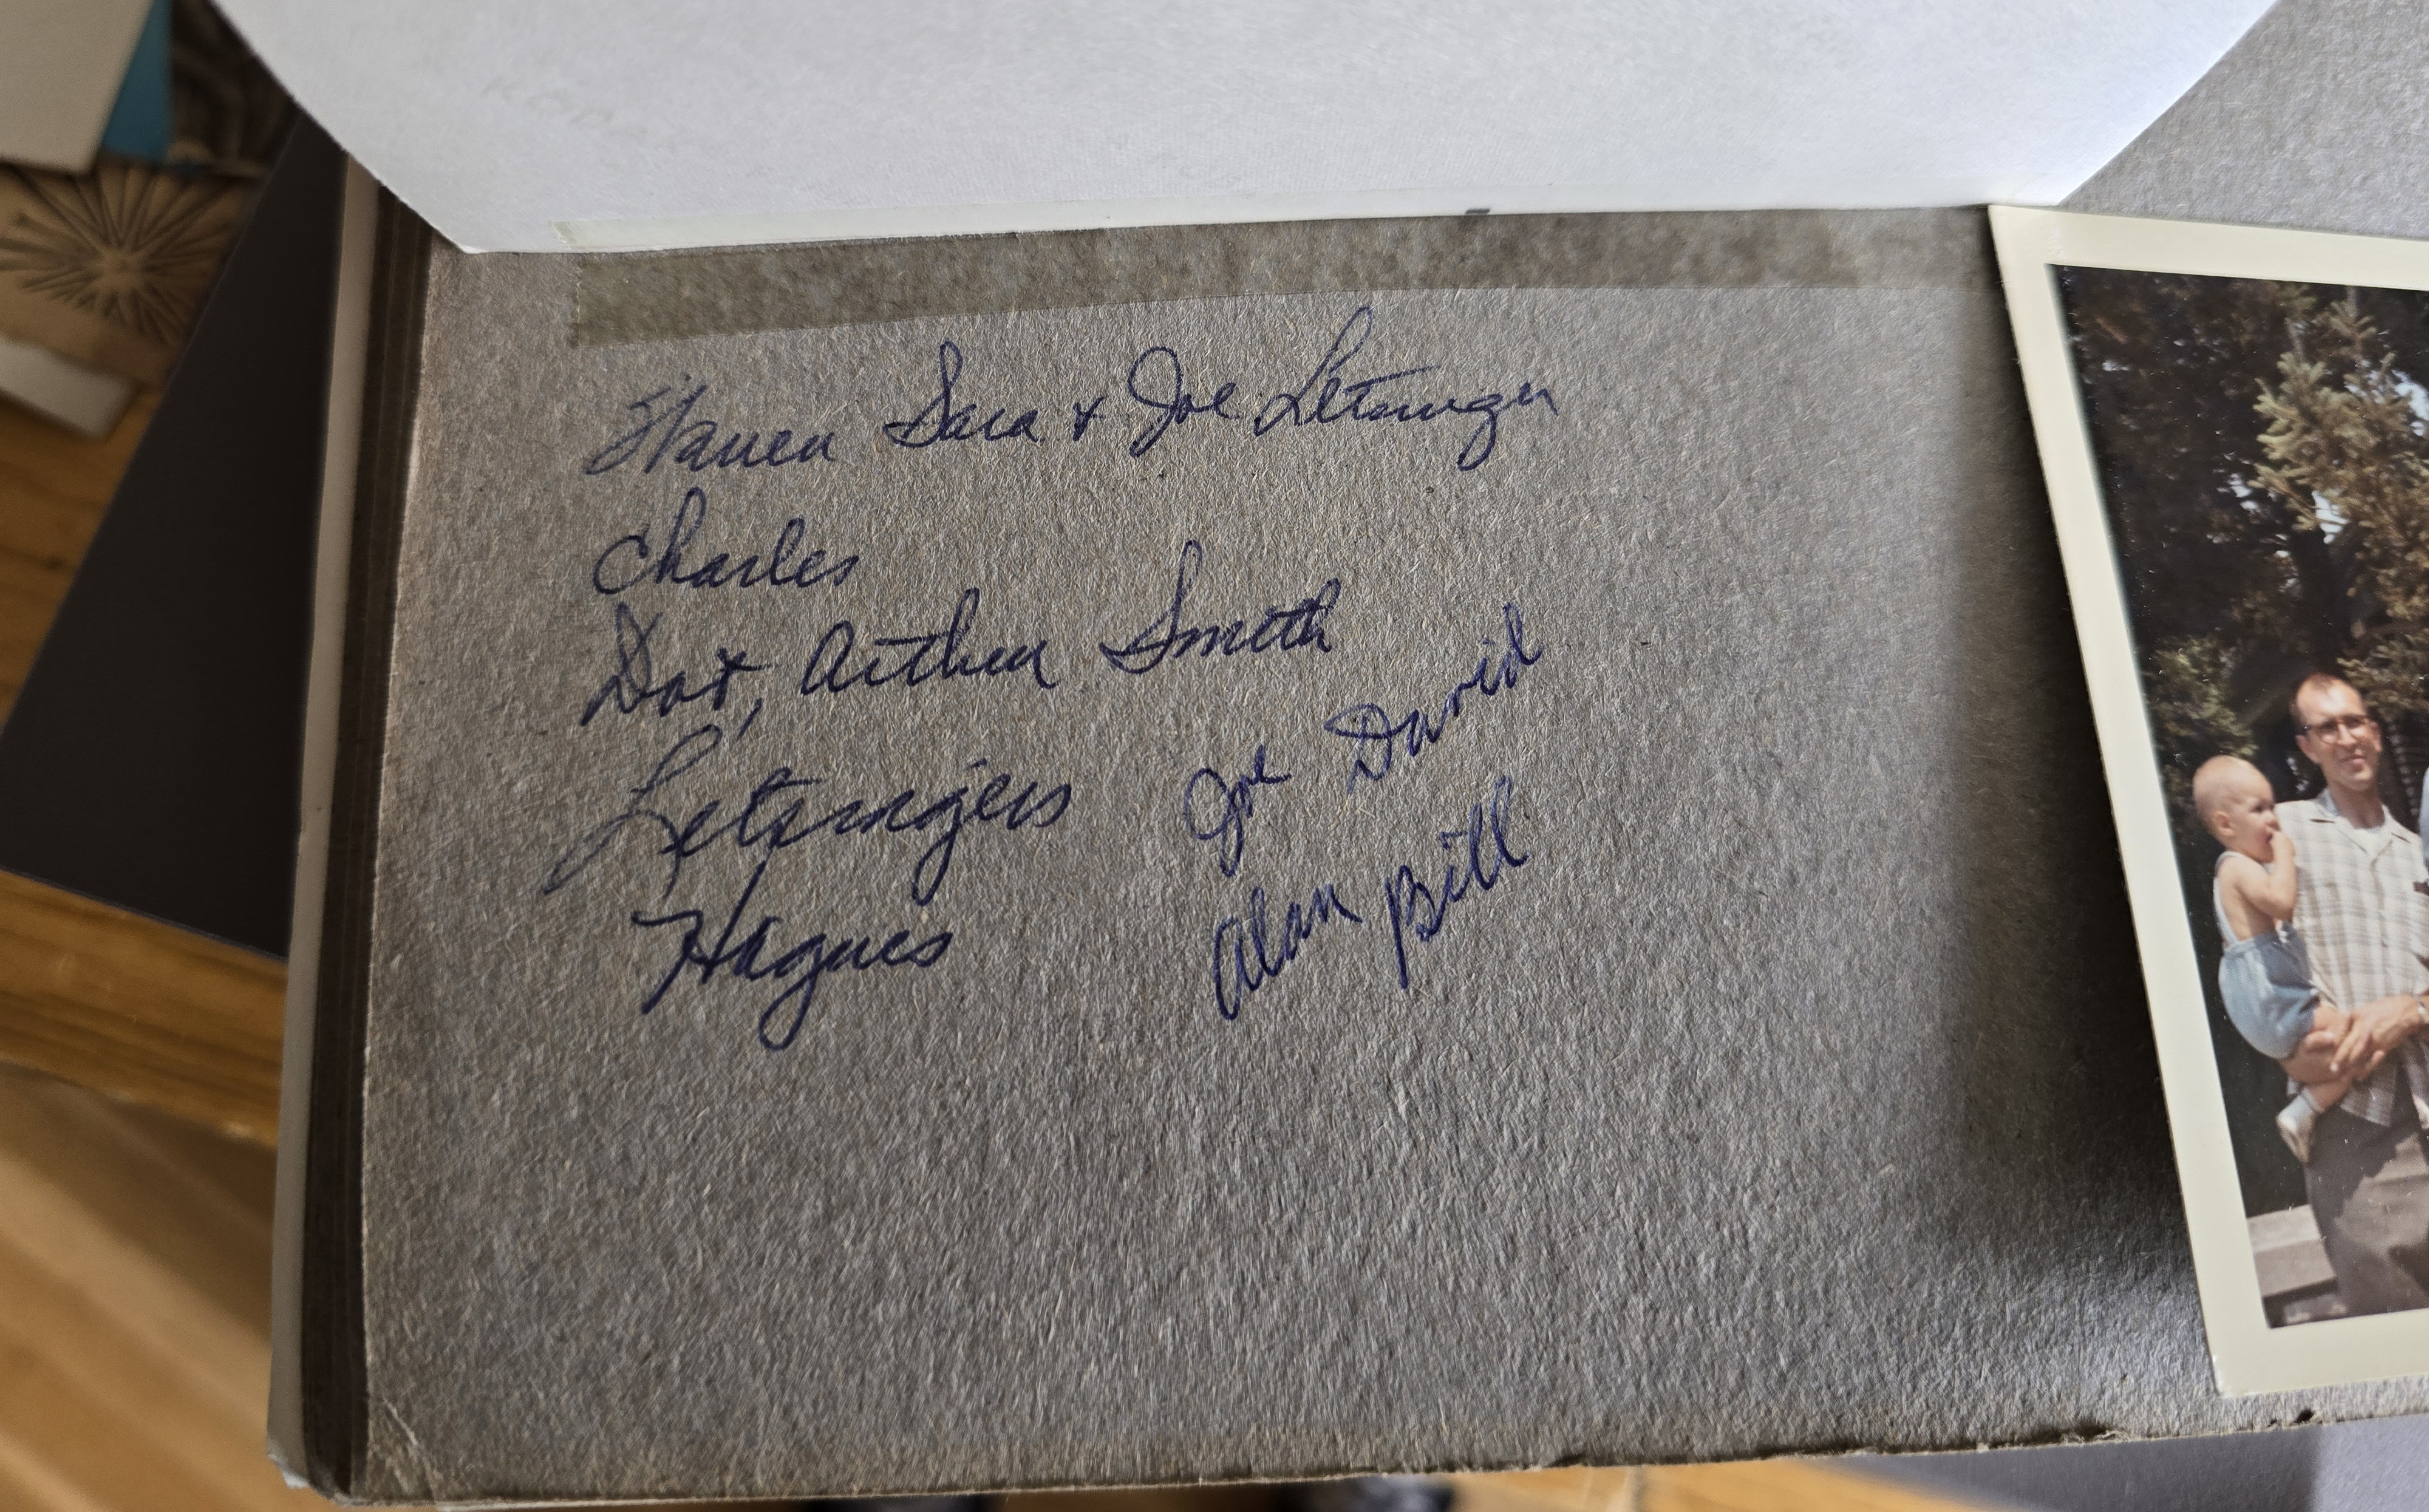 Warren Sara + Joe Letsinger
Charles
Dot, Arthur Smith
Letsingers
Hagues
Joe David
Alan Bill